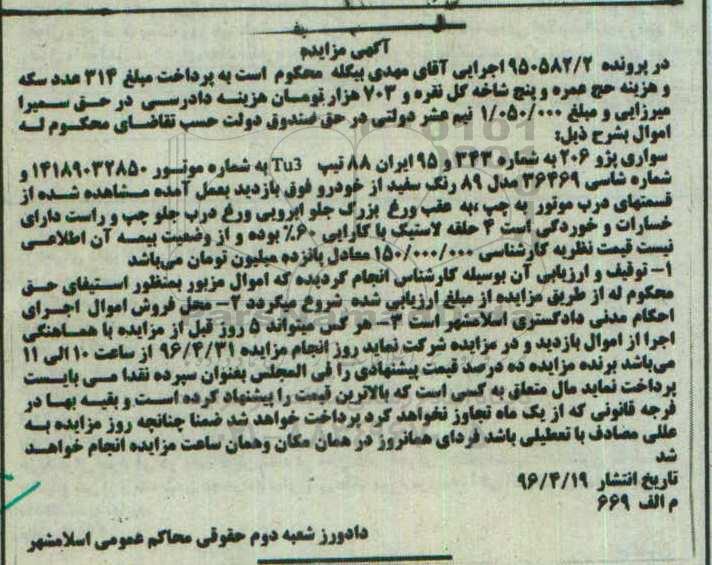 آگهی مزایده
در پرونده ۹۵۰۵۸۲/۲ اجرایی آقای مهدی بیگله محکوم است به پرداخت مبلغ ۳۱۴ عدد سکه
و هزینه حج عمره و پنج شاخه گل نقره و ۷۰۳ هزار تومان هزینه دادرسی در حق سمیرا
میرزایی و مبلغ ۱/۰۵۰/۰۰۰ نیم عشر دولتی در حق صندوق دولت حسب تقاضای محکوم له
اموال بشرح ذیل:
سواری پژو ۲۰۶ به شماره ۳۴۳ و ۹۵ ایران ۸۸ تیپ Tu3 به شماره موتور ۱۴۱۸۹۰۳۲۸۵۰ و
شماره شاسی ۳۶۴۶۹ مدل ۸۹ رنگ سفید از خودرو فوق بازدید بعمل آمده مشاهده شده از
قسمتهای درب موتور به چپ ،به عقب ورغ بزرگ جلو ابرویی ورغ درب جلو چپ و راست دارای
خسارات و خوردگی است ۴ حلقه لاستیک با کارایی ۶۰٪ بوده و از وضعیت بیمه آن اطلاعی
نیست قیمت نظریه کارشناسی ۱۵۰/۰۰۰/۰۰۰ معادل پانزده میلیون تومان می‌باشد
۱- توقیف و ارزیابی آن بوسیله کارشناس انجام گردیده که اموال مزبور بمنظور استیفای حق
محکوم له از طریق مزایده از مبلغ ارزیابی شده شروع میگردد ۲- محل فروش اموال اجرای
احکام مدنی دادگستری اسلامشهر است ۳- هر کس میتواند ۵ روز قبل از مزایده با هماهنگی
اجرا از اموال بازدید و در مزایده شرکت نماید روز انجام مزایده ۹۶/۴/۳۱ از ساعت ۱۰ الی ۱۱
می‌باشد برنده مزایده ده درصد قیمت پیشنهادی را فی المجلس بعنوان سپرده نقدا می بایست
پرداخت نماید مال متعلق به کسی است که بالاترین قیمت را پیشنهاد کرده است و بقیه بها در
فرجه قانونی که از یک ماه تجاوز نخواهد کرد پرداخت خواهد شد ضمنا چنانچه روز مزایده به
عللی مصادف با تعطیلی باشد فردای همانروز در همان مکان وهمان ساعت مزایده انجام خواهد
شد
تاریخ انتشار ۹۶/۴/۱۹
م الف ۶۶۹
دادورز شعبه دوم حقوقی محاکم عمومی اسلامشهر